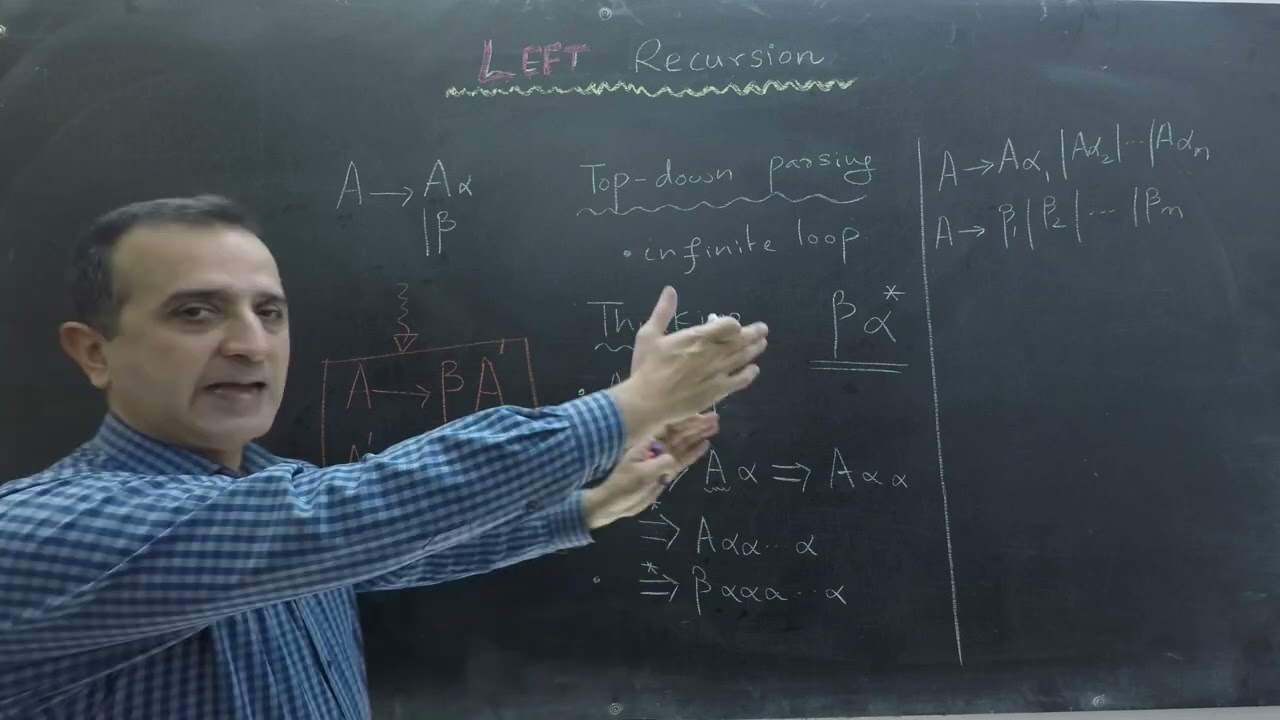 LEFT Recursion
A → Aα
|β
A → βA'
A'
Top-down parsing
• infinite loop
βα*
Aα ⇒ Aαα
*⇒ Aαα··α
• *⇒ βααα··α
A → Aα₁|Aα₂|···|Aαₙ
A → β₁|β₂|···|βₙ